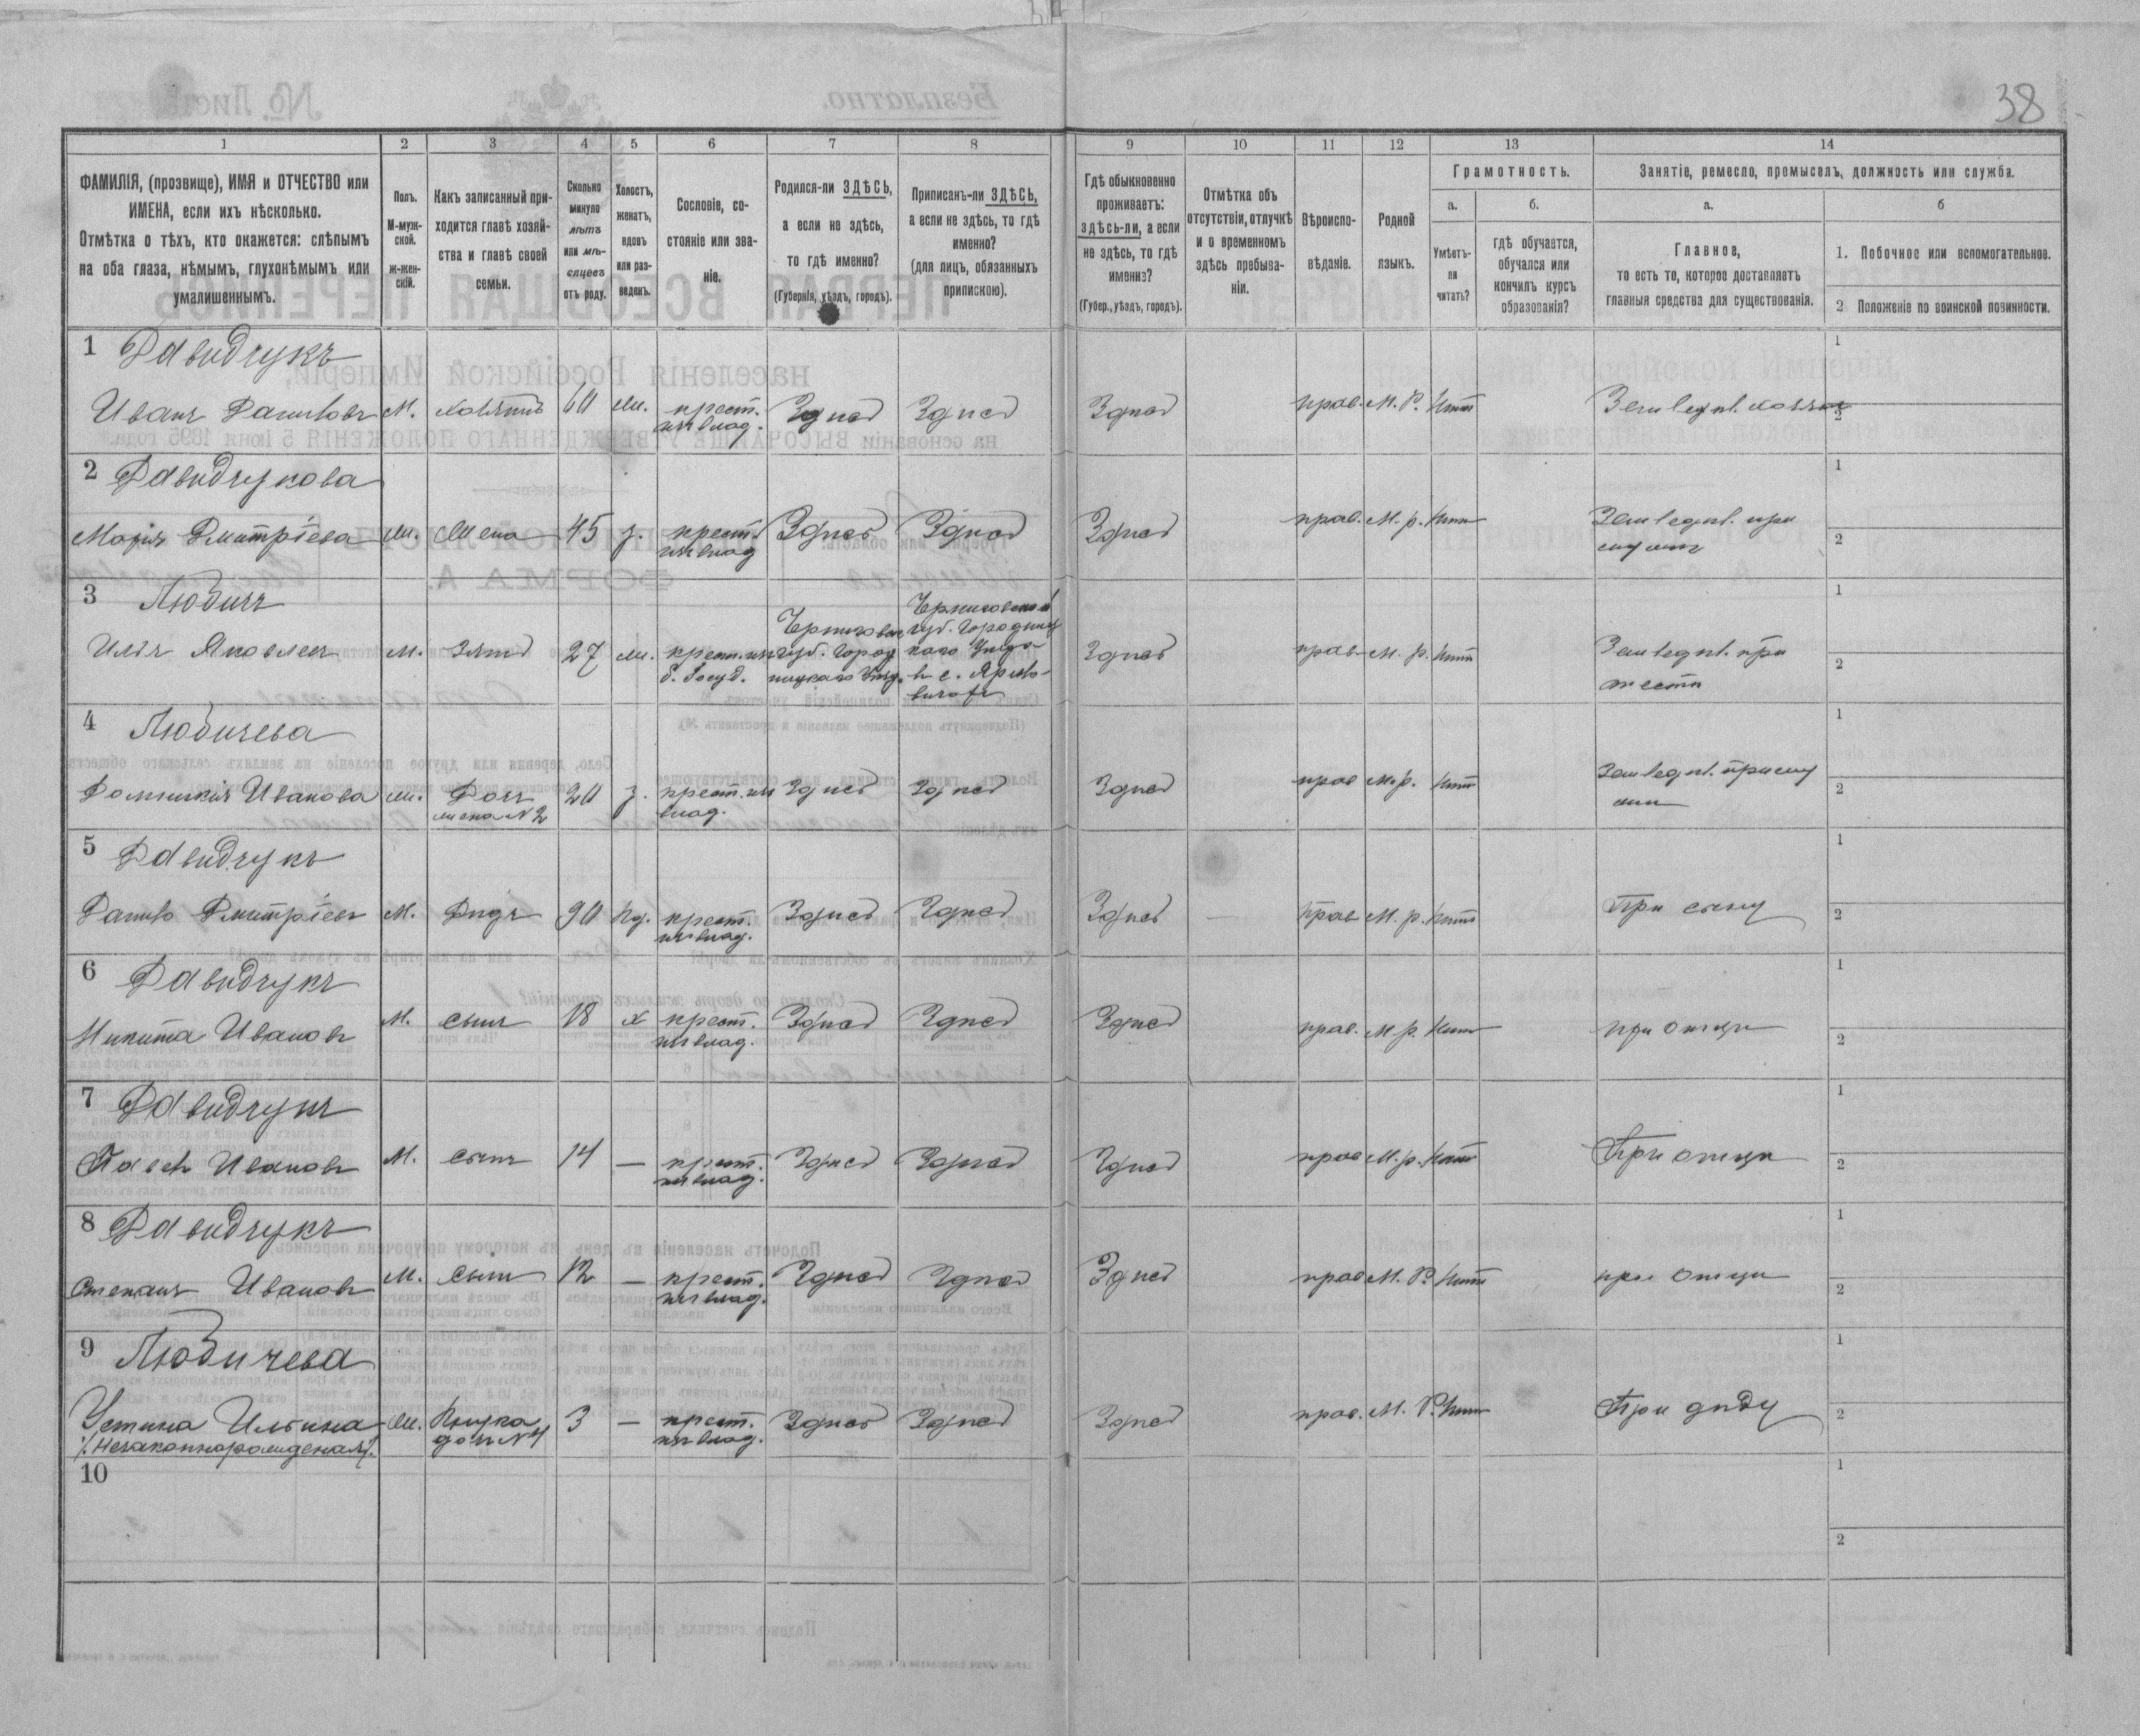 38
1 2 3 4 5 6 7 8 9 10 11 12 13 14
ФАМИЛІЯ, (прозвище), ИМЯ и ОТЧЕСТВО или
ИМЕНА, если ихъ нѣсколько.
Отмѣтка о тѣхъ, кто окажется: слѣпымъ
на оба глаза, нѣмымъ, глухонѣмымъ или
умалишеннымъ.
Полъ.
М-муж-
ской.
ж-жен-
скій.
Какъ записанный при-
ходится главѣ хозяй-
ства и главѣ своей
семьи.
Сколько
минуло
лѣтъ
или мѣ-
сяцевъ
отъ роду.
Холостъ,
женатъ,
вдовъ
или раз-
веденъ.
Сословіе, со-
стояніе или зва-
ніе.
Родился-ли ЗДѢСЬ,
а если не здѣсь,
то гдѣ именно?
(Губернія, уѣздъ, городъ).
Приписанъ-ли ЗДѢСЬ,
а если не здѣсь, то гдѣ
именно?
(для лицъ, обязанныхъ
припискою).
Гдѣ обыкновенно
проживаетъ:
здѣсь-ли, а если
не здѣсь, то гдѣ
именно?
(Губер., уѣздъ, городъ).
Отмѣтка объ
отсутствіи, отлучкѣ
и о временномъ
здѣсь пребыва-
ніи.
Вѣроиспо-
вѣданіе.
Родной
языкъ.
Грамотность.
а.
Умѣетъ-
ли
читать?
б.
гдѣ обучается,
обучался или
кончилъ курсъ
образованія?
Занятіе, ремесло, промыселъ, должность или служба.
а.
Главное,
то есть то, которое доставляетъ
главныя средства для существованія.
б
1. Побочное или вспомогательное.
2 Положеніе по воинской повинности.
1 Давидчукъ
Иванъ Даниловъ М. хозяинъ 60 ж. крест. Здѣсь Здѣсь Здѣсь прав. М. Р. нѣтъ Земледѣл. хозяинъ
изъ влад.
2 Давидчукова
Марія Дмитріева ж. Жена 45 з. крест. Здѣсь Здѣсь Здѣсь прав. М. р. нѣтъ Земледѣл. при
изъ влад мужѣ
3 Любичъ
Илья Яковлевъ М. Зять 27 ж. крест. изъ Черниговск Черниговской Здѣсь прав. М. р. нѣтъ Земледѣл. при
б. Госуд. губ. Город губ. Городниц тестѣ
ницкаго Уѣзд. каго Уѣзда
4 Любичева
Домникія Иванова ж. Дочь 20 з. крест. изъ Здѣсь Здѣсь Здѣсь прав М. р. нѣтъ Земледѣл. при му
жена N 2 влад. жѣ
5 Давидчукъ
Данило Дмитріевъ М. Дѣдъ 90 вд. крест. Здѣсь Здѣсь Здѣсь прав М. р. нѣтъ При сыну
изъ влад.
6 Давидчукъ
Никита Ивановъ М. сынъ 18 х крест. Здѣсь Здѣсь Здѣсь прав. М р. нѣтъ при отцѣ
изъ влад.
7 Давидчукъ
Павелъ Ивановъ М. сынъ 14 — крест. Здѣсь Здѣсь Здѣсь прав М. р. нѣтъ При отцѣ
изъ влад.
8 Давидчукъ
Степанъ Ивановъ М. сынъ 12 — крест. Здѣсь Здѣсь Здѣсь прав М. Р. нѣтъ при отцѣ
изъ влад.
9 Любичева
Устина Ильина ж. Внучка 3 — крест. Здѣсь Здѣсь Здѣсь прав. М. Р. нѣтъ При дѣду
/Незаконнорожденая/. дочь N 4 изъ влад.
10